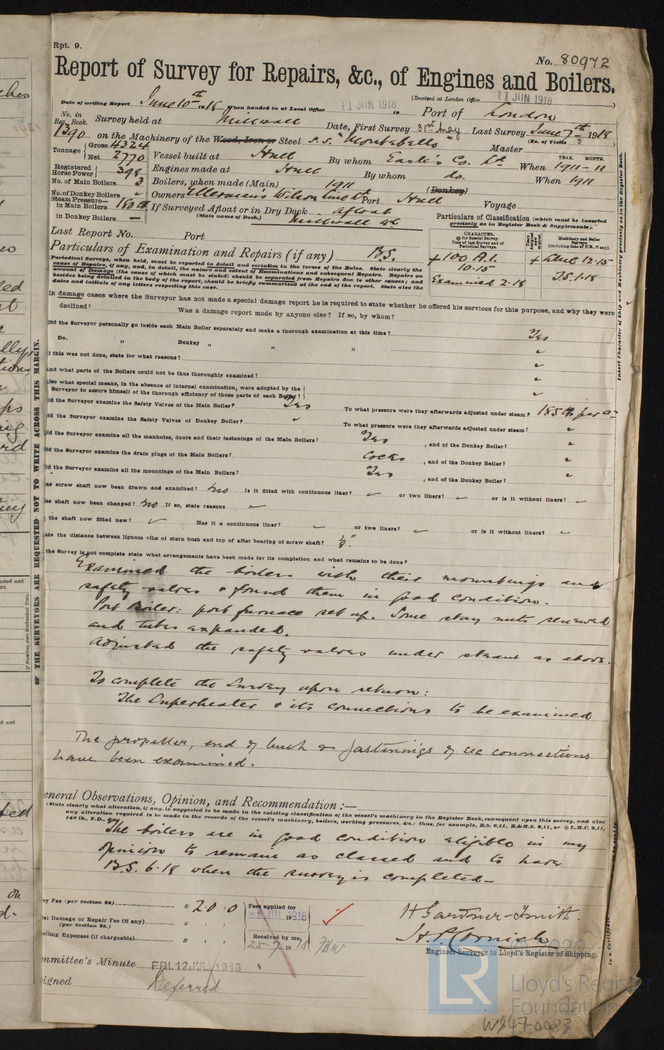 Rpt. 9.
No. 80972
Report of Survey for Repairs, &c., of Engines and Boilers.
(Received at London Office 11 JUN 1918)
Date of writing Report June 10th 1918 When handed in at Local Office 11 JUN 1918 Port of London
No. in Reg. Book 1390 Survey held at Millwall Date, First Survey 31st May Last Survey June 7th 1918
(No. of Visits 3)
on the Machinery of the Wood, Iron or Steel S.S. Montebello Master
Tonnage Gross 4324 Net 2770 Vessel built at Hull By whom Earle's Co. Ld When 1911-11
YEAR. MONTH.
Registered Horse Power 398 Engines made at Hull By whom do. When 1911
No. of Main Boilers 3 Boilers, when made (Main) 1911 (Donkey)
No. of Donkey Boilers – Owners Ellerman's Wilson Line Ld Port Hull Voyage
Steam Pressure in Main Boilers 180 lb If Surveyed Afloat or in Dry Dock afloat
in Donkey Boilers – (State name of Dock.) Millwall Dk
Particulars of Classification (which must be inserted precisely as in Register Book & Supplements).
Last Report No. Port
Particulars of Examination and Repairs (if any) B.S.
+ 100 A.1.
10.15
Examined 2.18
+ LMC 12.15
T.S. 1.18
In damage cases where the Surveyor has not made a special damage report he is required to state whether he offered his services for this purpose, and why they were
declined? Was a damage report made by anyone else? If so, by whom?
Did the Surveyor personally go inside each Main Boiler separately and make a thorough examination at this time? Yes
Do. " Donkey " " "
If this was not done, state for what reasons?
And what parts of the Boilers could not be thus thoroughly examined?
Also what special means, in the absence of internal examination, were adopted by the
Surveyor to assure himself of the thorough efficiency of those parts of each Boiler?
Did the Surveyor examine the Safety Valves of the Main Boiler? Yes To what pressure were they afterwards adjusted under steam? 185 lb per □"
Did the Surveyor examine the Safety Valves of Donkey Boiler? To what pressure were they afterwards adjusted under steam?
Did the Surveyor examine all the manholes, doors and their fastenings of the Main Boilers? Yes , and of the Donkey Boiler?
Did the Surveyor examine the drain plugs of the Main Boilers? Cocks , and of the Donkey Boiler?
Did the Surveyor examine all the mountings of the Main Boilers? Yes , and of the Donkey Boiler?
as screw shaft now been drawn and examined? No Is it fitted with continuous liner? or two liners? or is it without liners?
as shaft now been changed? No If so, state reasons
the shaft now fitted new? Has it a continuous liner? or two liners? or is it without liners?
ate the distance between lignum vitæ of stern bush and top of after bearing of screw shaft?
the Survey is not complete state what arrangements have been made for its completion and what remains to be done?
Examined the boilers with their mountings and
safety valves & found them in good condition.
Port Boiler: port furnace set up. Some stay nuts renewed
and tubes expanded.
Adjusted the safety valves under steam as above.
To complete the Survey upon return:
The Superheater & its connections to be examined
The propeller, end of bush & fastenings of sea connections
have been examined.
eneral Observations, Opinion, and Recommendation:—
(State clearly what alteration, if any, is suggested to be made in the existing classification of the vessel's machinery in the Register Book, consequent upon this survey, and also
any alteration required to be made in the records of the vessel's machinery, boilers, working pressures, &c.: Thus, for example, B.S. 9,11, B.&M.S. 9,11, or L.M.C. 9,11,
140 lb., F.D., &c.)
The boilers are in good condition eligible in my
opinion to remain as classed and to have
B.S. 6.18 when the survey is completed.
ey Fee (per Section 28) £ 2 0 0 Fees applied for 1918
ial Damage or Repair Fee (if any) (per Section 28.) £
elling Expenses (if chargeable) £ Received by me, 25-7-1918
H Gardner-Smith.
H.P. Cornish
Engineer Surveyor to Lloyd's Register of Shipping.
ommittee's Minute FRI. 12 JUL 1918
signed Deferred
OF THE SURVEYORS ARE REQUESTED NOT TO WRITE ACROSS THIS MARGIN.
LR
Lloyd's Register
Foundation
W847-0083